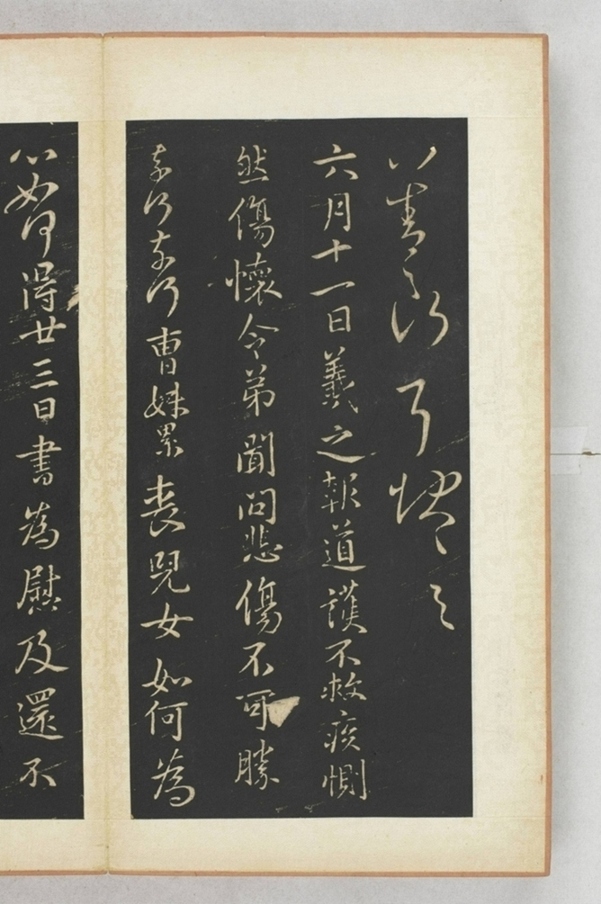 耳
六月十一日羲之報道護不救疾惻
然傷懷令弟聞問悲傷不可勝
奈何奈何曹妹累喪兒女如何為
心如何得廿三日書為慰及還不